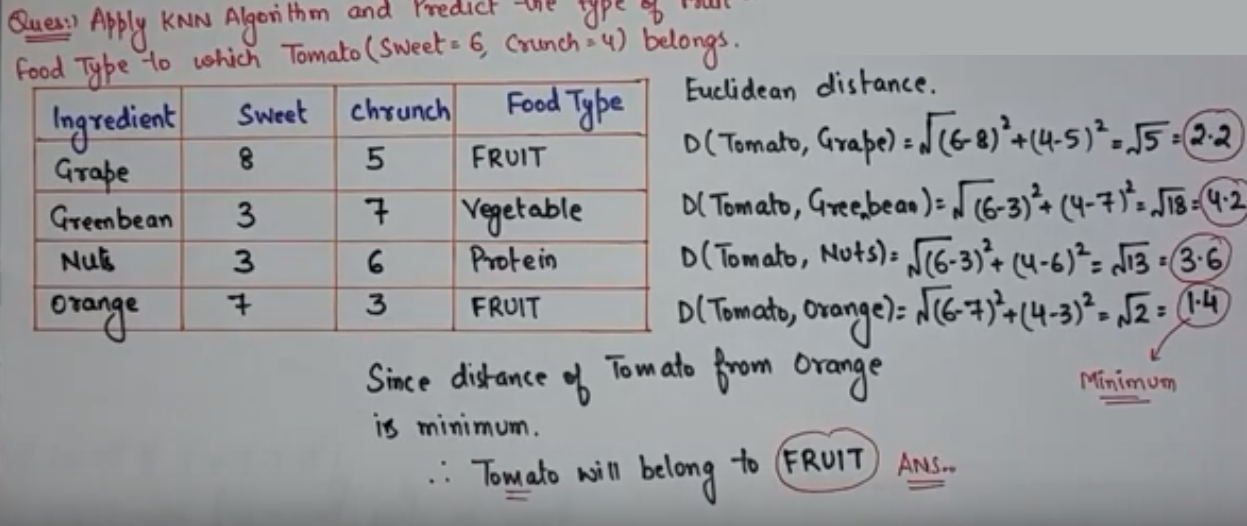 Ques:) Apply KNN Algorithm and Predict the type of Fruit
Food Type to which Tomato (Sweet = 6, Crunch = 4) belongs.
Ingredient Sweet Chrunch Food Type
Grape 8 5 FRUIT
Greenbean 3 7 Vegetable
Nuts 3 6 Protein
Orange 7 3 FRUIT
Euclidean distance.
D(Tomato, Grape) = √(6-8)²+(4-5)² = √5 = 2.2
D(Tomato, Greenbean) = √(6-3)²+(4-7)² = √18 = 4.2
D(Tomato, Nuts) = √(6-3)²+(4-6)² = √13 = 3.6
D(Tomato, Orange) = √(6-7)²+(4-3)² = √2 = 1.4
Minimum
Since distance of Tomato from Orange
is minimum.
∴ Tomato will belong to FRUIT ANS..